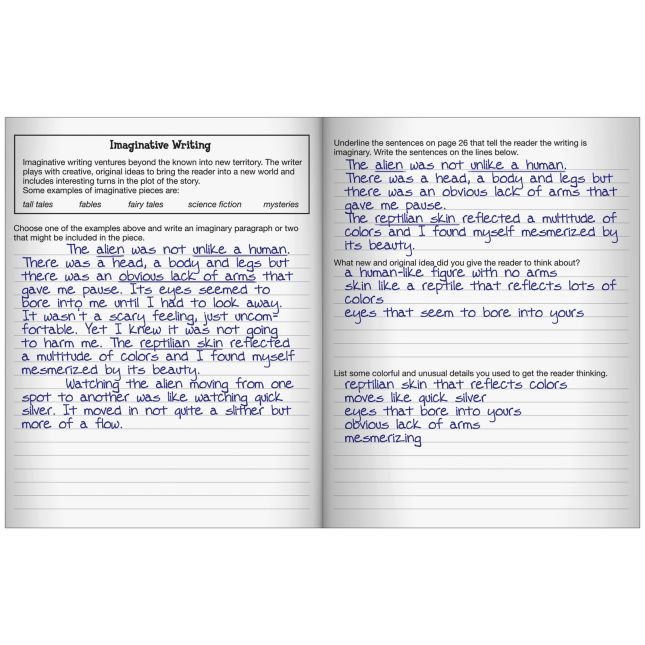 Imaginative Writing
Imaginative writing ventures beyond the known into new territory. The writer
plays with creative, original ideas to bring the reader into a new world and
includes interesting turns in the plot of the story.
Some examples of imaginative pieces are:
tall tales fables fairy tales science fiction mysteries
Choose one of the examples above and write an imaginary paragraph or two
that might be included in the piece.
The alien was not unlike a human.
There was a head, a body and legs but
there was an obvious lack of arms that
gave me pause. Its eyes seemed to
bore into me until I had to look away.
It wasn't a scary feeling, just uncom-
fortable. Yet I knew it was not going
to harm me. The reptilian skin reflected
a multitude of colors and I found myself
mesmerized by its beauty.
Watching the alien moving from one
spot to another was like watching quick
silver. It moved in not quite a slither but
more of a flow.
Underline the sentences on page 26 that tell the reader the writing is
imaginary. Write the sentences on the lines below.
The alien was not unlike a human.
There was a head, a body and legs but
there was an obvious lack of arms that
gave me pause.
The reptilian skin reflected a multitude of
colors and I found myself mesmerized by
its beauty.
What new and original idea did you give the reader to think about?
a human-like figure with no arms
skin like a reptile that reflects lots of
colors
eyes that seem to bore into yours
List some colorful and unusual details you used to get the reader thinking.
reptilian skin that reflects colors
moves like quick silver
eyes that bore into yours
obvious lack of arms
mesmerizing